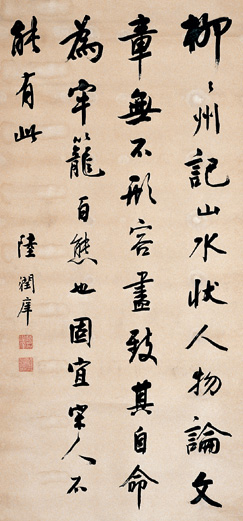 柳〻州記山水狀人物論文
章無不形容盡致其自命
為牢籠百態也固宜宋人不
能有此
陸潤庠